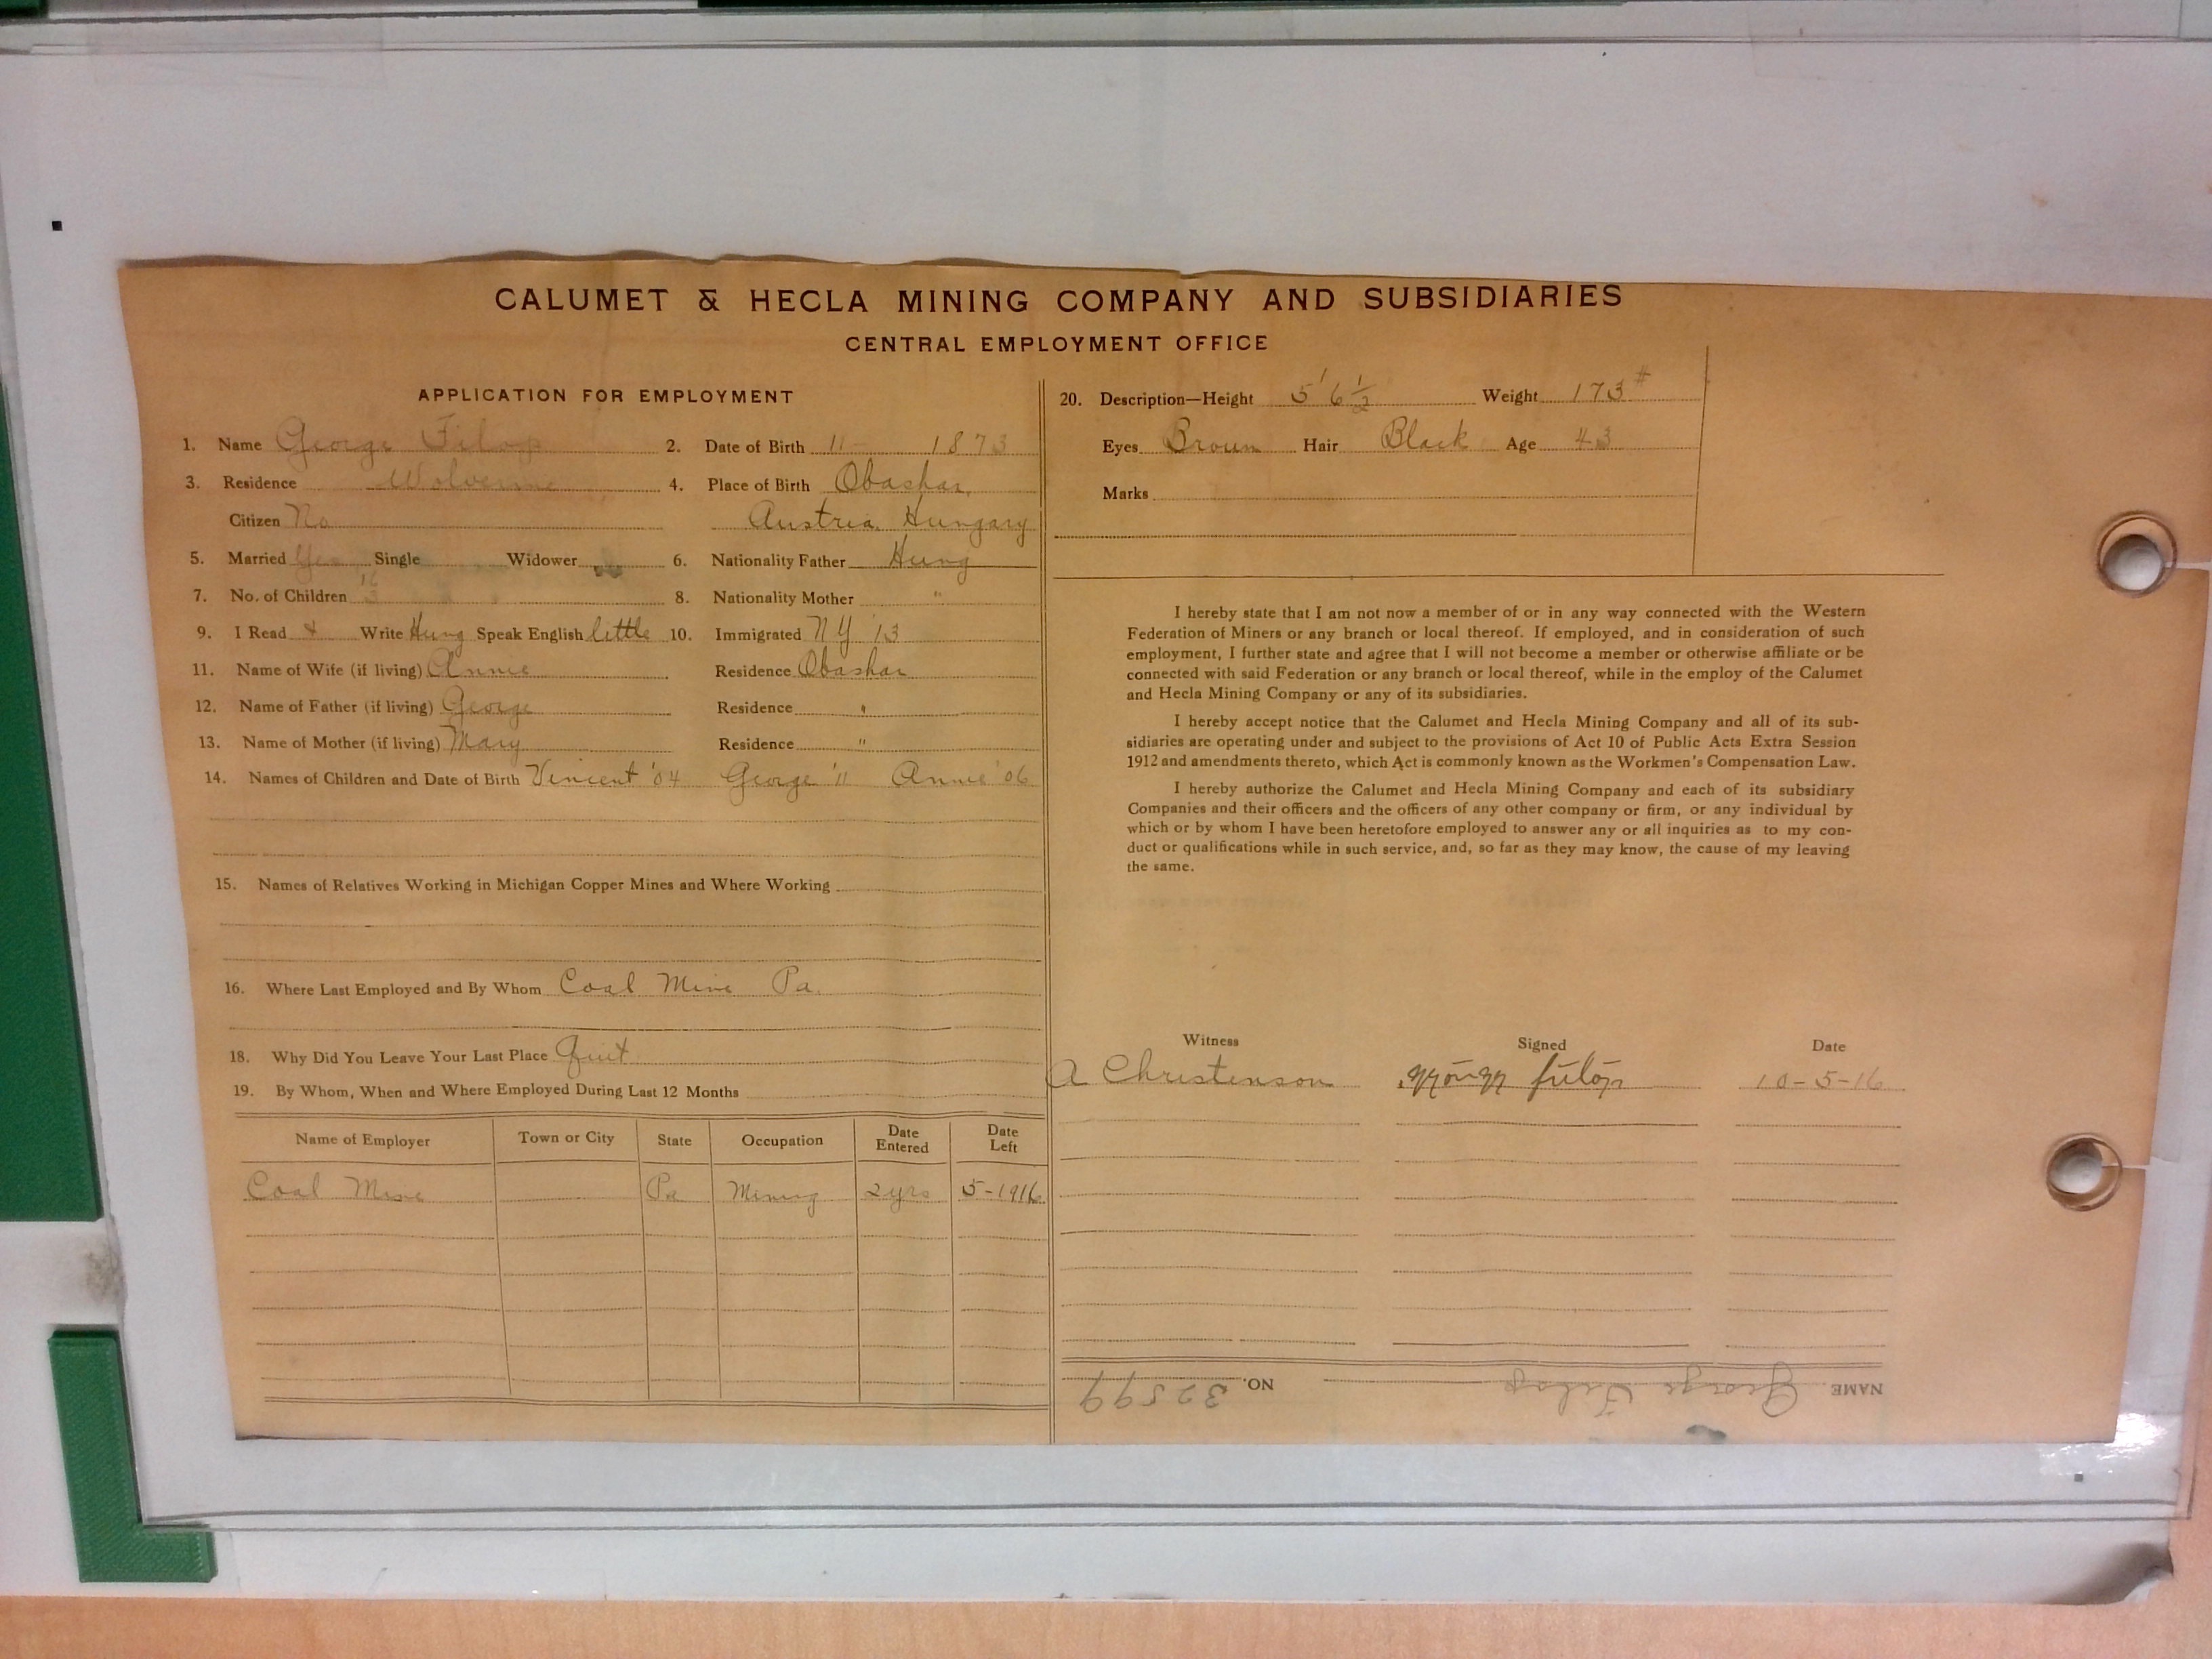 CALUMET & HECLA MINING COMPANY AND SUBSIDIARIES
CENTRAL EMPLOYMENT OFFICE
APPLICATION FOR EMPLOYMENT
1. Name George Filop 2. Date of Birth 11- 1873
3. Residence Wolverine 4. Place of Birth Obashar,
Citizen No Austria Hungary
5. Married Yes Single Widower 6. Nationality Father Hung
7. No. of Children 3 8. Nationality Mother "
9. I Read & Write Hung Speak English little 10. Immigrated NY '13
11. Name of Wife (if living) Annie Residence Obashar
12. Name of Father (if living) George Residence "
13. Name of Mother (if living) Mary Residence "
14. Names of Children and Date of Birth Vincent '04 George '11 Annie '06
15. Names of Relatives Working in Michigan Copper Mines and Where Working
16. Where Last Employed and By Whom Coal Mine Pa.
18. Why Did You Leave Your Last Place Quit
19. By Whom, When and Where Employed During Last 12 Months
Name of Employer Town or City State Occupation Date Entered Date Left
Coal Mine Pa Mining 2 yrs 5-1916
20. Description—Height 5' 6 1/2 Weight 173#
Eyes Broun Hair Black Age 43
Marks
I hereby state that I am not now a member of or in any way connected with the Western
Federation of Miners or any branch or local thereof. If employed, and in consideration of such
employment, I further state and agree that I will not become a member or otherwise affiliate or be
connected with said Federation or any branch or local thereof, while in the employ of the Calumet
and Hecla Mining Company or any of its subsidiaries.
I hereby accept notice that the Calumet and Hecla Mining Company and all of its sub-
sidiaries are operating under and subject to the provisions of Act 10 of Public Acts Extra Session
1912 and amendments thereto, which Act is commonly known as the Workmen's Compensation Law.
I hereby authorize the Calumet and Hecla Mining Company and each of its subsidiary
Companies and their officers and the officers of any other company or firm, or any individual by
which or by whom I have been heretofore employed to answer any or all inquiries as to my con-
duct or qualifications while in such service, and, so far as they may know, the cause of my leaving
the same.
Witness Signed Date
A Christenson fülöp 10-5-16
NAME George Filop NO. 32599